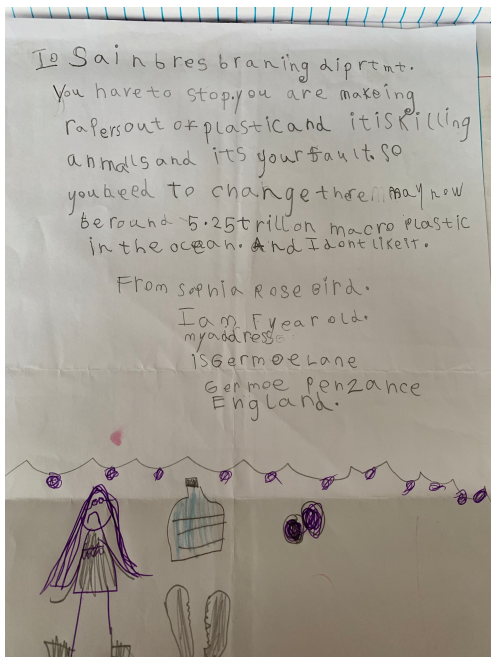 To Sainbres braning diprtmt.
You have to stop. you are makeing
rapers out of plastic and it is killing
anmalls and its your fault. so
you need to change there may now
be round 5.25 trillon macro plastic
in the ocean. And I dont like it.
From Sophia Rose Bird.
I am 7 year old.
my address
is Germoe Lane
Germoe Penzance
England.